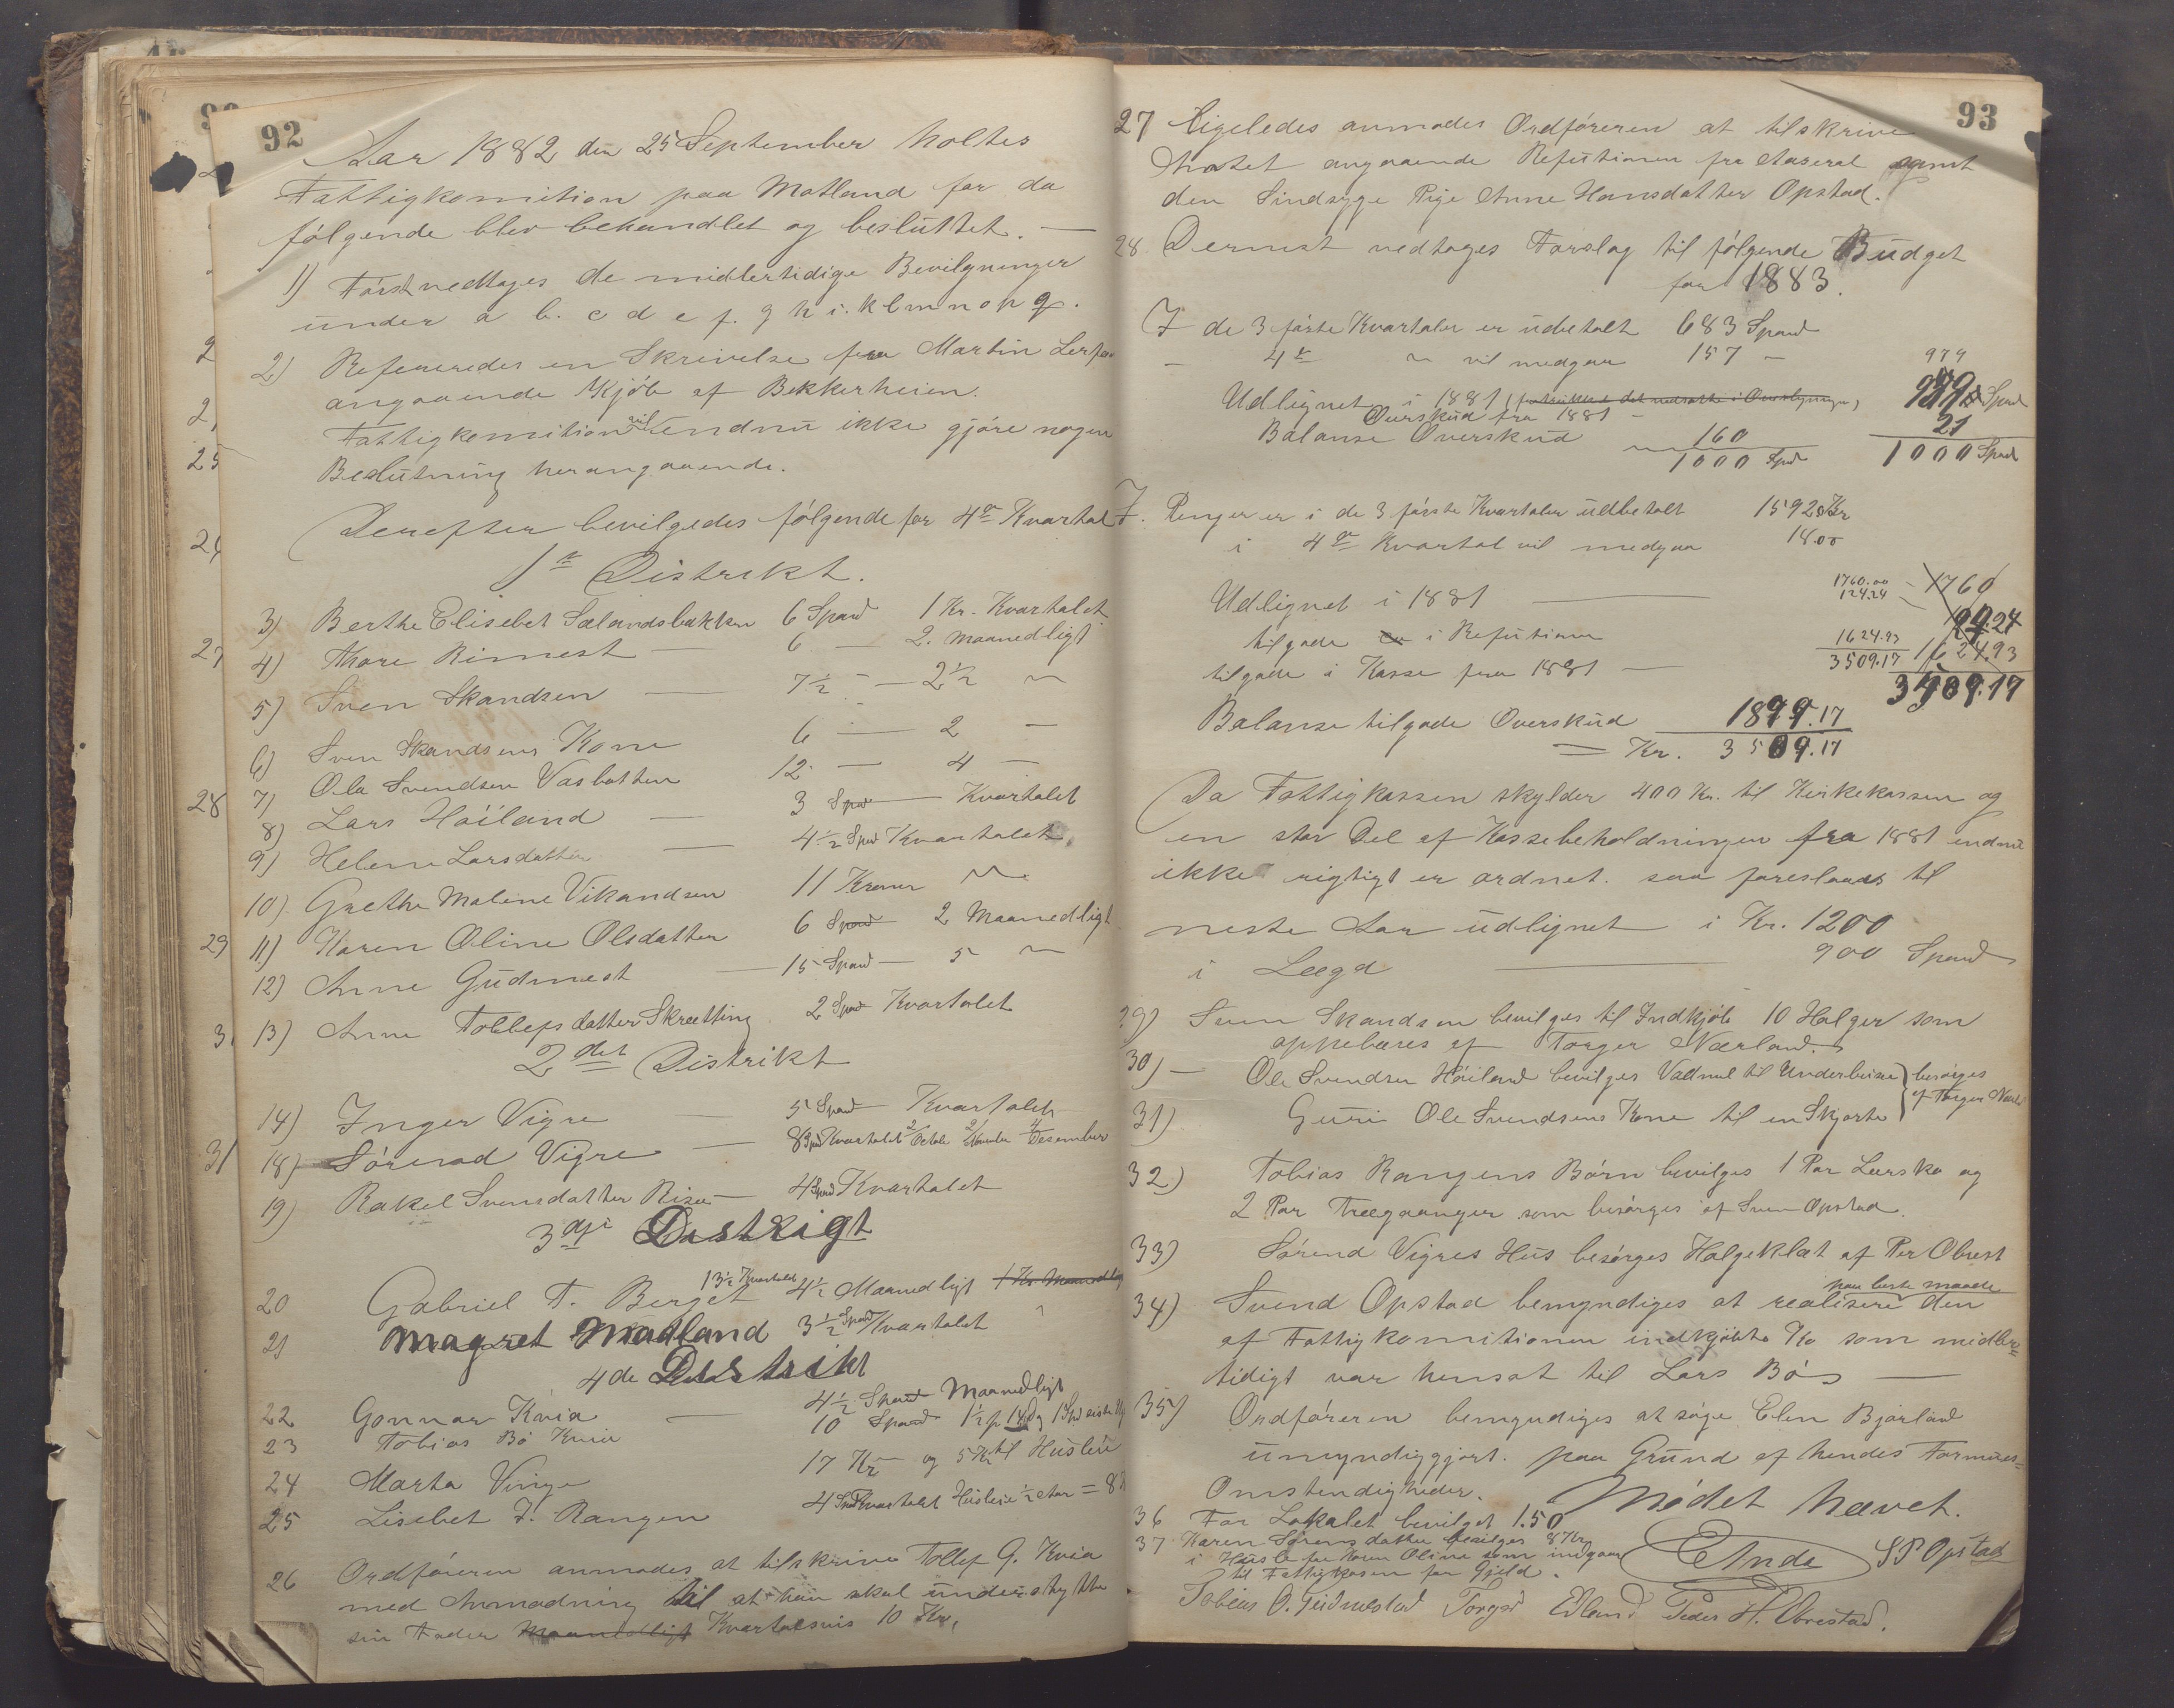 92
Aar 1882 den 25 September holtes
Fattigkomition paa Motland for da
følgende blev behandlet og besluttet. —
1) Først vedtoges de midlertidige Bevilgninger
under a b. c d e f. g h i. k l m n o p q.
2) Refereredes en Skrivelse fra Martin
angaaende Kjøb af Bekkerheien.
Fattigkomition vil endnu ikke gjøre nogen
Beslutning herangaaende.
Derefter bevilgedes følgende for 4de Kvartal
1ste Distrikt.
3) Berthe Elisebet Salandsbakken 6 Spand 1 Kr. Kvartalet
4) Thore Rimest — 6 — 2. maanedligt
5) Sven Skandsen — 7½ — 2½ "
6) Sven Skandsens Kone 6 — 2 —
7) Ole Svendsen Vasbotten 12 — 4 —
8) Lars Høiland — 3 Spand — Kvartalet
9) Helene Larsdatter — 4½ Spd Kvartalet
10) Grethe Malene Vikandsen 11 Kroner "
11) Karen Oline Olsdatter 6 Spand 2 Maanedligt
12) Anne Gudmest — 15 Spand — 5 "
13) Anne Tollefsdatter Skretting 2 Spand Kvartalet
2det Distrikt
14) Inger Vigre — 5 Spand Kvartalet
18) Sørend Vigre — 8 Spd Kvartalet 2/October 2/November 4/Desember
19) Rakel Svensdatter Risa — 4 Spand Kvartalet
3dje Distrigt
20 Gabriel T. Berget 13½ Kvartalet 4½ Maanedligt 1 Kr. Maanedlig
21 Magret Madland 3½ Spand Kvartalet
4de Distrikt
22 Gonnar Kvia — 4½ Spand Maanedligt
23 Tobias Bø Kvia 10 Spand 1½ p. 14 Dg 1 Spd sidste
24 Marta Vinge 17 Kr og 5 Kr til Husleie
25 Lisebet J. Rangen 4 Spd Kvartalet Husleie ½ Aar = 8
26 Ordføreren anmodes at tilskrive Tollef G. Kvia
med Anmodning til at han skal understytte
sin Fader Maanedligt Kvartalsvis 10 Kr.
93
27 Ligeledes anmodes Ordføreren at tilskrive
Amtet angaaende Refutionen fra Aaseral samt
den Sindsyge Pige Anne Hansdatter Opstad.
28. Dernest vedtoges Forslag til følgende Budget
for 1883.
I de 3 første Kvartaler er udbetalt 683 Spand
— 4de " vil medgaa 157 — 979
Udlignet i 1881 979 Spand
Overskud fra 1881 — 21
Balanse Overskud 160
1000 Spd 1000 Spand
I. Penger er i de 3 første Kvartaler udbetalt 1592 Kr
i 4de Kvartal vil medgaa 18.00
Udlignet i 1881 — 1760.00 - 1760
tilgode i Refutioner 124.24 124.24
tilgode i Kasse fra 1881 — 1624.93 1624.93
3509.17 3509.17
Balanse tilgode Overskud 1899.17
= Kr. 3509.17
Da Fattigkassen skylder 400 Kr. til Kirkekassen og
en stor Del af Kassebeholdningen fra 1881 endnu
ikke rigtigt er ordnet. saa foreslaaes til
neste Aar udlignet i Kr. 1200
i Lægd — 900 Spand
29) Sven Skandsen bevilges til Indkjøb 10 Halger som
oppebæres af Torger Nærland.
30) — Ole Svendsen Høiland bevilges Vadmel til Underbuxe } besørges
31) Guri Ole Svendsens Kone til en Skjorte } af Torger Nærl
32) Tobias Rangens Børn bevilges 1 Par Lærsko og
2 Par Trægaanger som besørges af Sven Opstad.
33) Sørend Vigres Hus besørges Halgeklat af Per Obrest
34) Svend Opstad bemyndiges at realisere paa beste maade den
af Fattigkomitionen indkjøbte Ko som midler=
tidigt var hensat til Lars Bø —
35) Ordføreren bemyndiges at søge Elen Bjorland
umyndiggjort. paa Grund af hendes Formues=
Omstendigheder.
Mødet hævet.
36 For Lokalet bevilget 1.50
37 Karen Sørensdatter bevilges 8 Kr
i Husle for Karen Oline som indgaar
til Fattigkassen for Gjeld.
E Anda SP Opstad
Tobias O. Gudmestad Torger Edland Peder H. Obrestad.